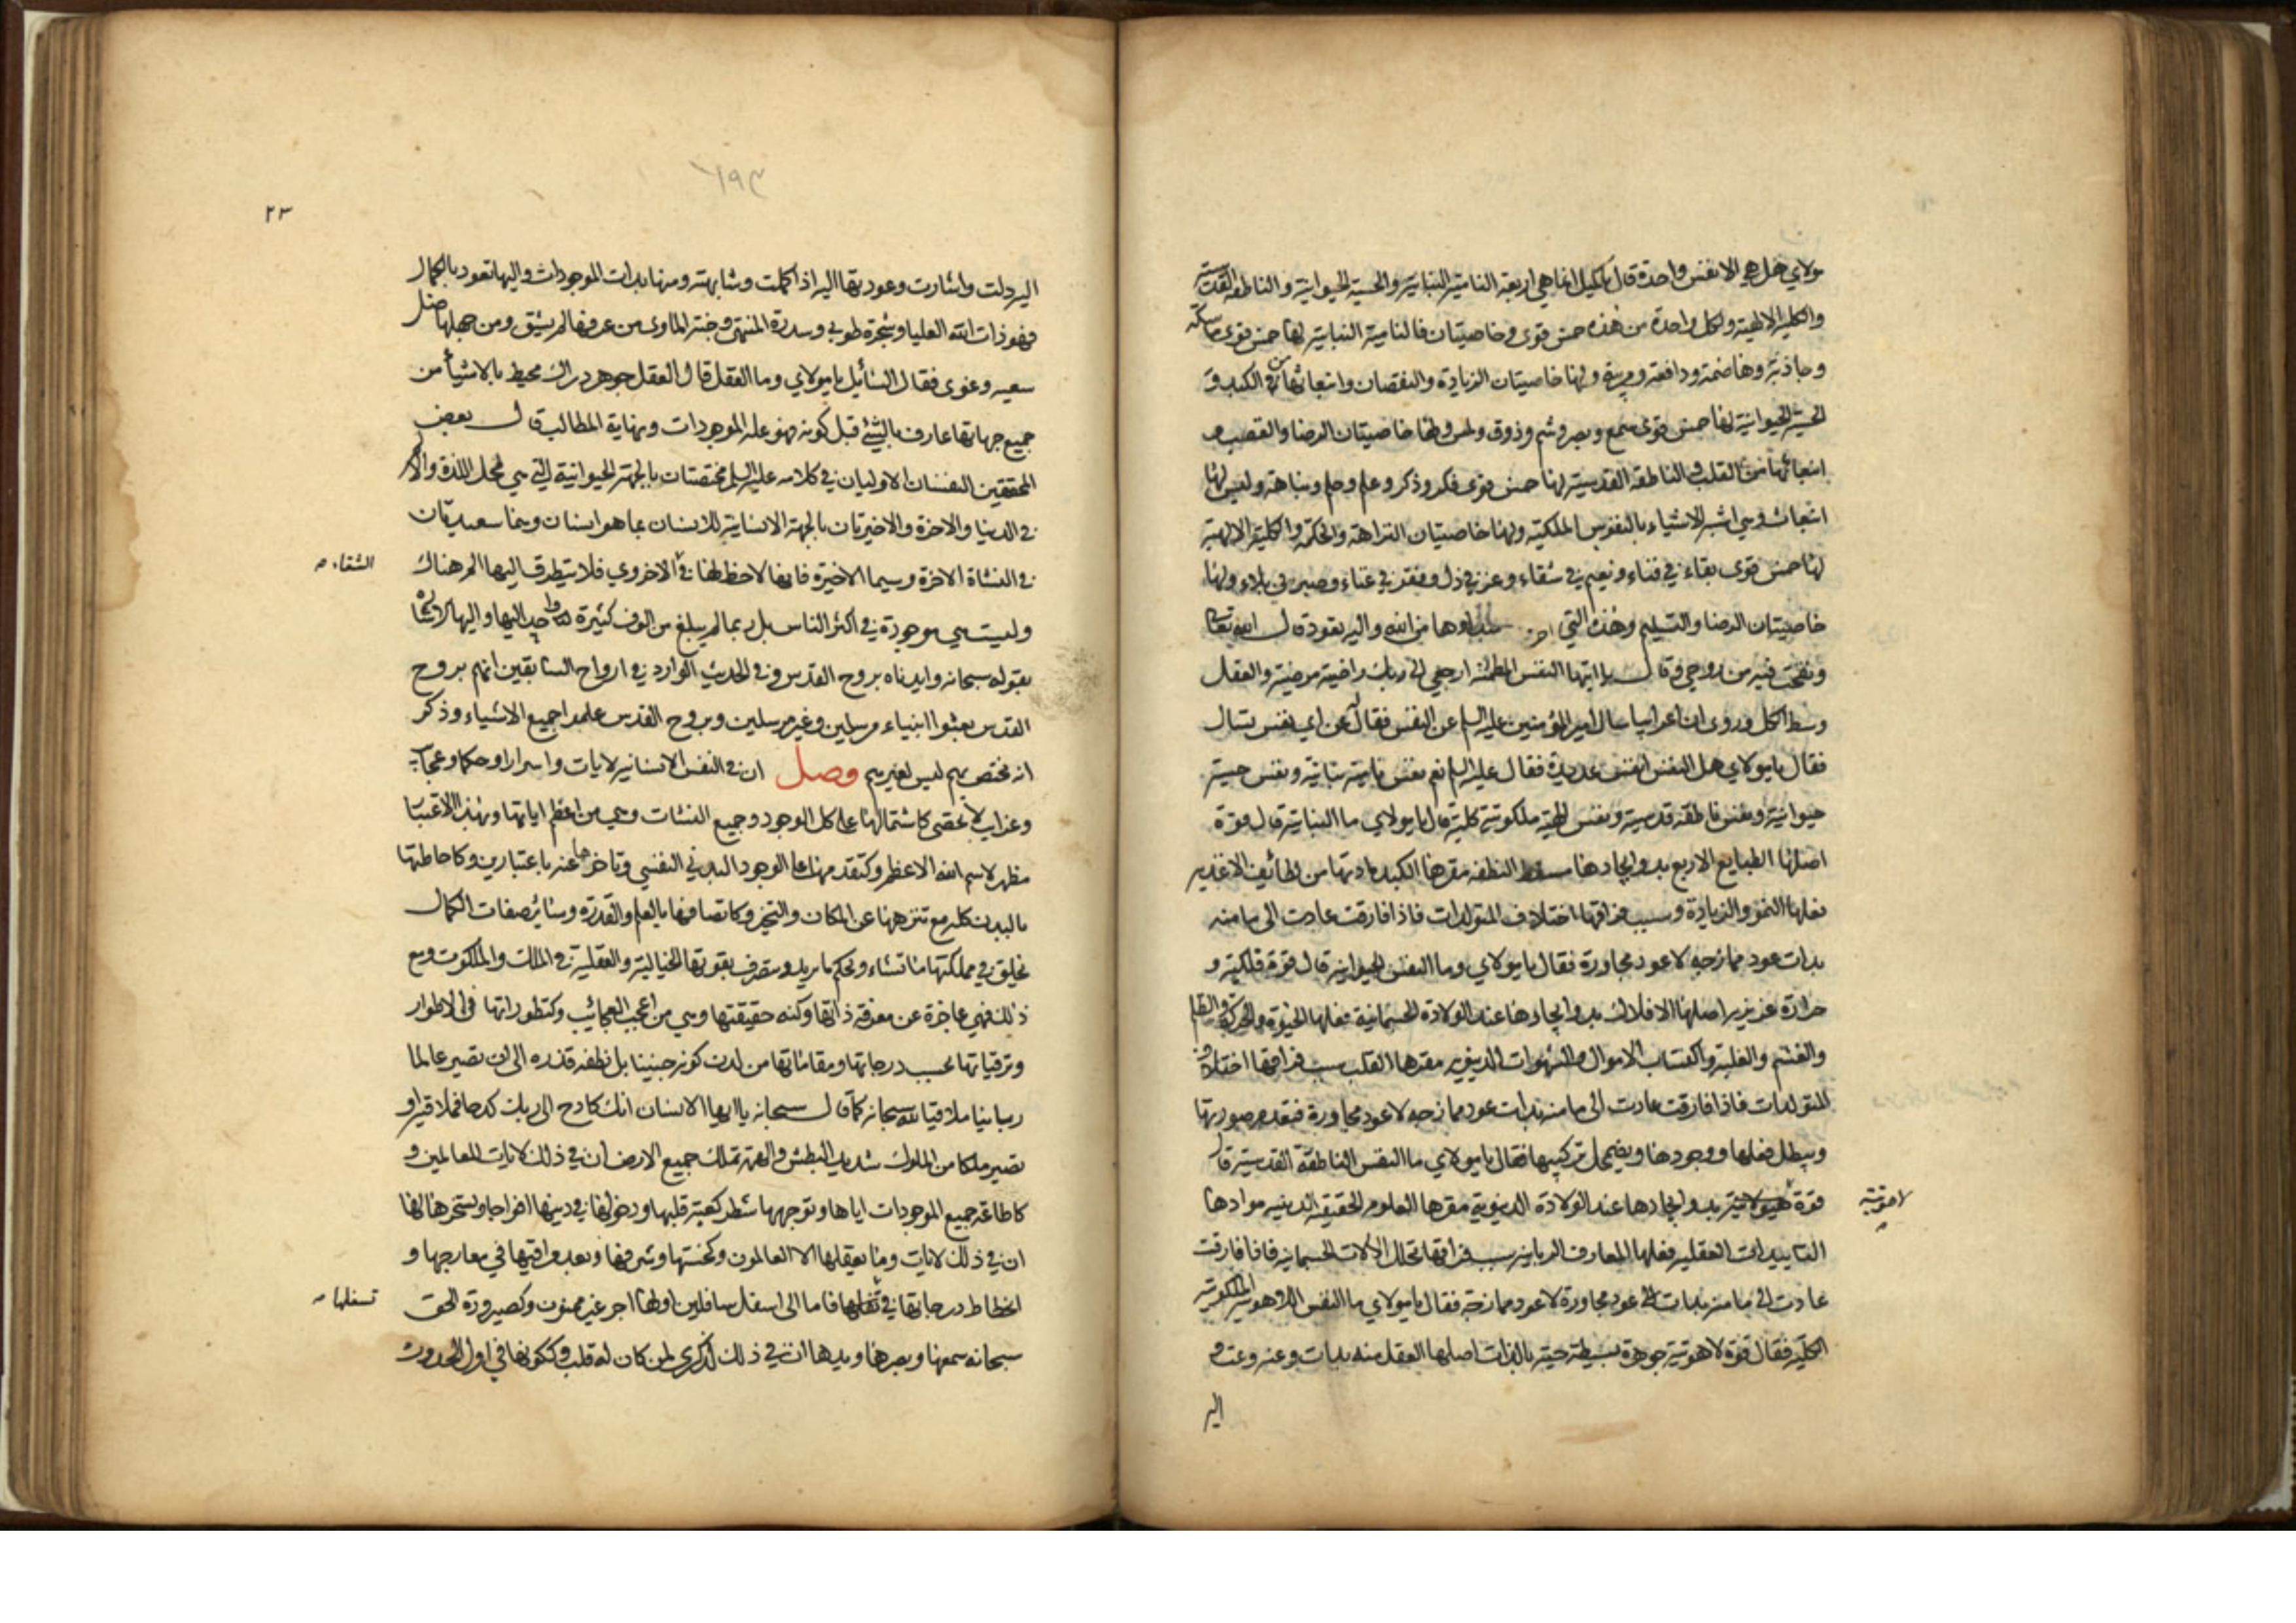 مولاي هل هي الا نفس واحدة قال يا كميل انما هي اربعة النامية النباتية والحسية الحيوانية والناطقة القدسية
والكلية الالهية ولكل واحدة من هذه خمس قوى وخاصيتان فالنامية النباتية لها خمس قوى ماسكة
وجاذبة وهاضمة ودافعة ومربية ولها خاصيتان الزيادة والنقصان وانبعاثها من الكبد و
الحسية الحيوانية لها خمس قوى سمع وبصر وشم وذوق ولمس ولها خاصيتان الرضا والغضب و
انبعاثها من القلب والناطقة القدسية لها خمس قوى فكر وذكر وعلم وحلم ونباهة وليس لها
انبعاث وهي اشبه الاشياء بالنفوس الملكية ولها خاصيتان النزاهة والحكمة والكلية الالهية
لها خمس قوى بقاء في فناء ونعيم في شقاء وعز في ذل وفقر في غناء وصبر في بلاء ولها
خاصيتان الرضا والتسليم وهذه التي مبداوها من الله واليه تعود قال الله تعالى
ونفخت فيه من روحي وقال يا ايتها النفس المطمئنة ارجعي الى ربك راضية مرضية والعقل
وسط الكل وروي ان اعرابيا سال امير المؤمنين عليه السلم عن النفس فقال له عن اي نفس تسال
فقال يا مولاي هل النفس انفس عديدة فقال عليه السلم نعم نفس نامية نباتية ونفس حسية
حيوانية ونفس ناطقة قدسية ونفس الهية ملكوتية كلية قال يا مولاي ما النباتية قال قوة
اصلها الطبايع الاربع بدو ايجادها مسقط النطفة مقرها الكبد مادتها من لطائف الاغذية
فعلها النمو والزيادة وسبب فراقها اختلاف المتولدات فاذا فارقت عادت الى ما منه
بدات عود ممازجة لا عود مجاورة فقال يا مولاي وما النفس الحيوانية قال قوة فلكية و
حرارة غريزية اصلها الافلاك بدو ايجادها عند الولادة الجسمانية فعلها الحيوة والحركة والظلم
والغشم والغلبة واكتساب الاموال والشهوات الدنيوية مقرها القلب سبب فراقها اختلاف
المتولدات فاذا فارقت عادت الى ما منه بدات عود ممازجة لا عود مجاورة فتعدم صورتها
ويبطل فعلها ووجودها ويضمحل تركيبها فقال يا مولاي ما النفس الناطقة القدسية قال
قوة هيولانية بدو ايجادها عند الولادة الدنيوية مقرها العلوم الحقيقة الدينية موادها
لاهوتية
التاييدات العقلية فعلها المعارف الربانية سبب فراقها تحلل الالات الجسمانية فاذا فارقت
عادت الى ما منه بدات الى عود مجاورة لا عود ممازجة فقال يا مولاي ما النفس اللاهوتية الملكوتية
الكلية فقال قوة لاهوتية جوهرة بسيطة حية بالذات اصلها العقل منه بدات وعنه وعت و
اليه
٦٩٣
٢٣
اليه دلت واشارت وعودتها اليه اذا كملت وشابهته ومنها بدات الموجودات واليها تعود بالكمال
فهو ذات الله العليا وشجرة طوبى وسدرة المنتهى وجنة الماوى من عرفها لم يشق ومن جهلها ضل
سعيه وغوى فقال السائل يا مولاي وما العقل قال العقل جوهر دراك محيط بالاشياء من
جميع جهاتها عارف بالشئ قبل كونه فهو علة الموجودات ونهاية المطالب قال بعض
المحققين النفسان الاوليان في كلامه عليه السلم مختصتان بالجهة الحيوانية التي هي محل اللذة والالم
في الدنيا والاخرة والاخيرتان بالجهة الانسانية للانسان بما هو انسان وهما سعيدتان
في النشاة الاخرة وسيما الاخيرة فانها لا حظ لها في الاخروي فلا يتطرق اليها الم هناك
الشقاء
وليست هي موجودة في اكثر الناس بل ربما لم يبلغ من الوف كثيرة واحد اليها واليها الاشارة
بقوله سبحانه وايدناه بروح القدس وفي الحديث الوارد في ارواح السابقين انهم بروح
القدس بعثوا انبياء مرسلين وغير مرسلين وبروح القدس علموا جميع الاشياء وذكر
انه مختص بهم ليس لغيرهم فصل ان في النفس الانسانية لايات واسرارا وحكما وعجائب
وغرايب لا تحصى كاشتمالها على كل الوجود وجميع النشات وهي من اعظم اياتها وبهذا الاعتبار
مظهر لاسم الله الاعظم وكتقدمها على الوجود البدني النفسي وتاخرها عنه باعتبارين وكاحاطتها
بالبدن كله مع تنزهها عن المكان والتحيز وكاتصافها بالعلم والقدرة وسائر صفات الكمال
تخلق في مملكتها ما تشاء وتحكم ما يريد وتتصرف بقوتها الخيالية والعقلية في الملك والملكوت ومع
ذلك فهي عاجزة عن معرفة ذاتها وكنه حقيقتها وهي من اعجب العجائب وكتطوراتها في الاطوار
وترقياتها بحسب درجاتها ومقاماتها من لدن كونه جنينا بل نطفة قذرة الى ان تصير عالما
ربانيا ملاقيا لله سبحانه كما قال سبحانه يا ايها الانسان انك كادح الى ربك كدحا فملاقيه او
تصير ملكا من الملوك شديد البطش والهمة تملك جميع الارض ان في ذلك لايات للعالمين و
كاطاعة جميع الموجودات اياها وتوجهها شطر كعبة قلبها ودخولها في دينها افواجا وتسخرها لها
ان في ذلك لايات وما يعقلها الا العالمون وكخستها وشرفها وبعد مراقيها في معارجها و
انحطاط درجاتها في تنقلها فاما الى اسفل سافلين او لها اجر غير ممنون وكصيرورة الحق
تسفلها
سبحانه سمعها وبصرها ويدها ان في ذلك لذكرى لمن كان له قلب وككونها في اول الحدوث